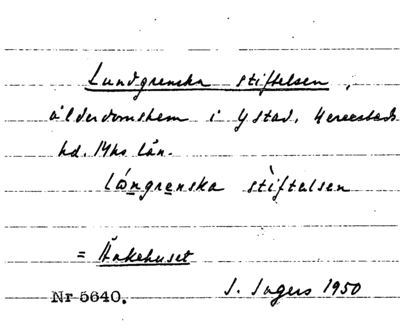 Lundgrenska stiftelsen,
ålderdomshem i Ystad, Herrestads
hd. Mhs län.
lóngrenska stìftelsen
= Änkehuset
Nr 5640. I. Ingers 1950